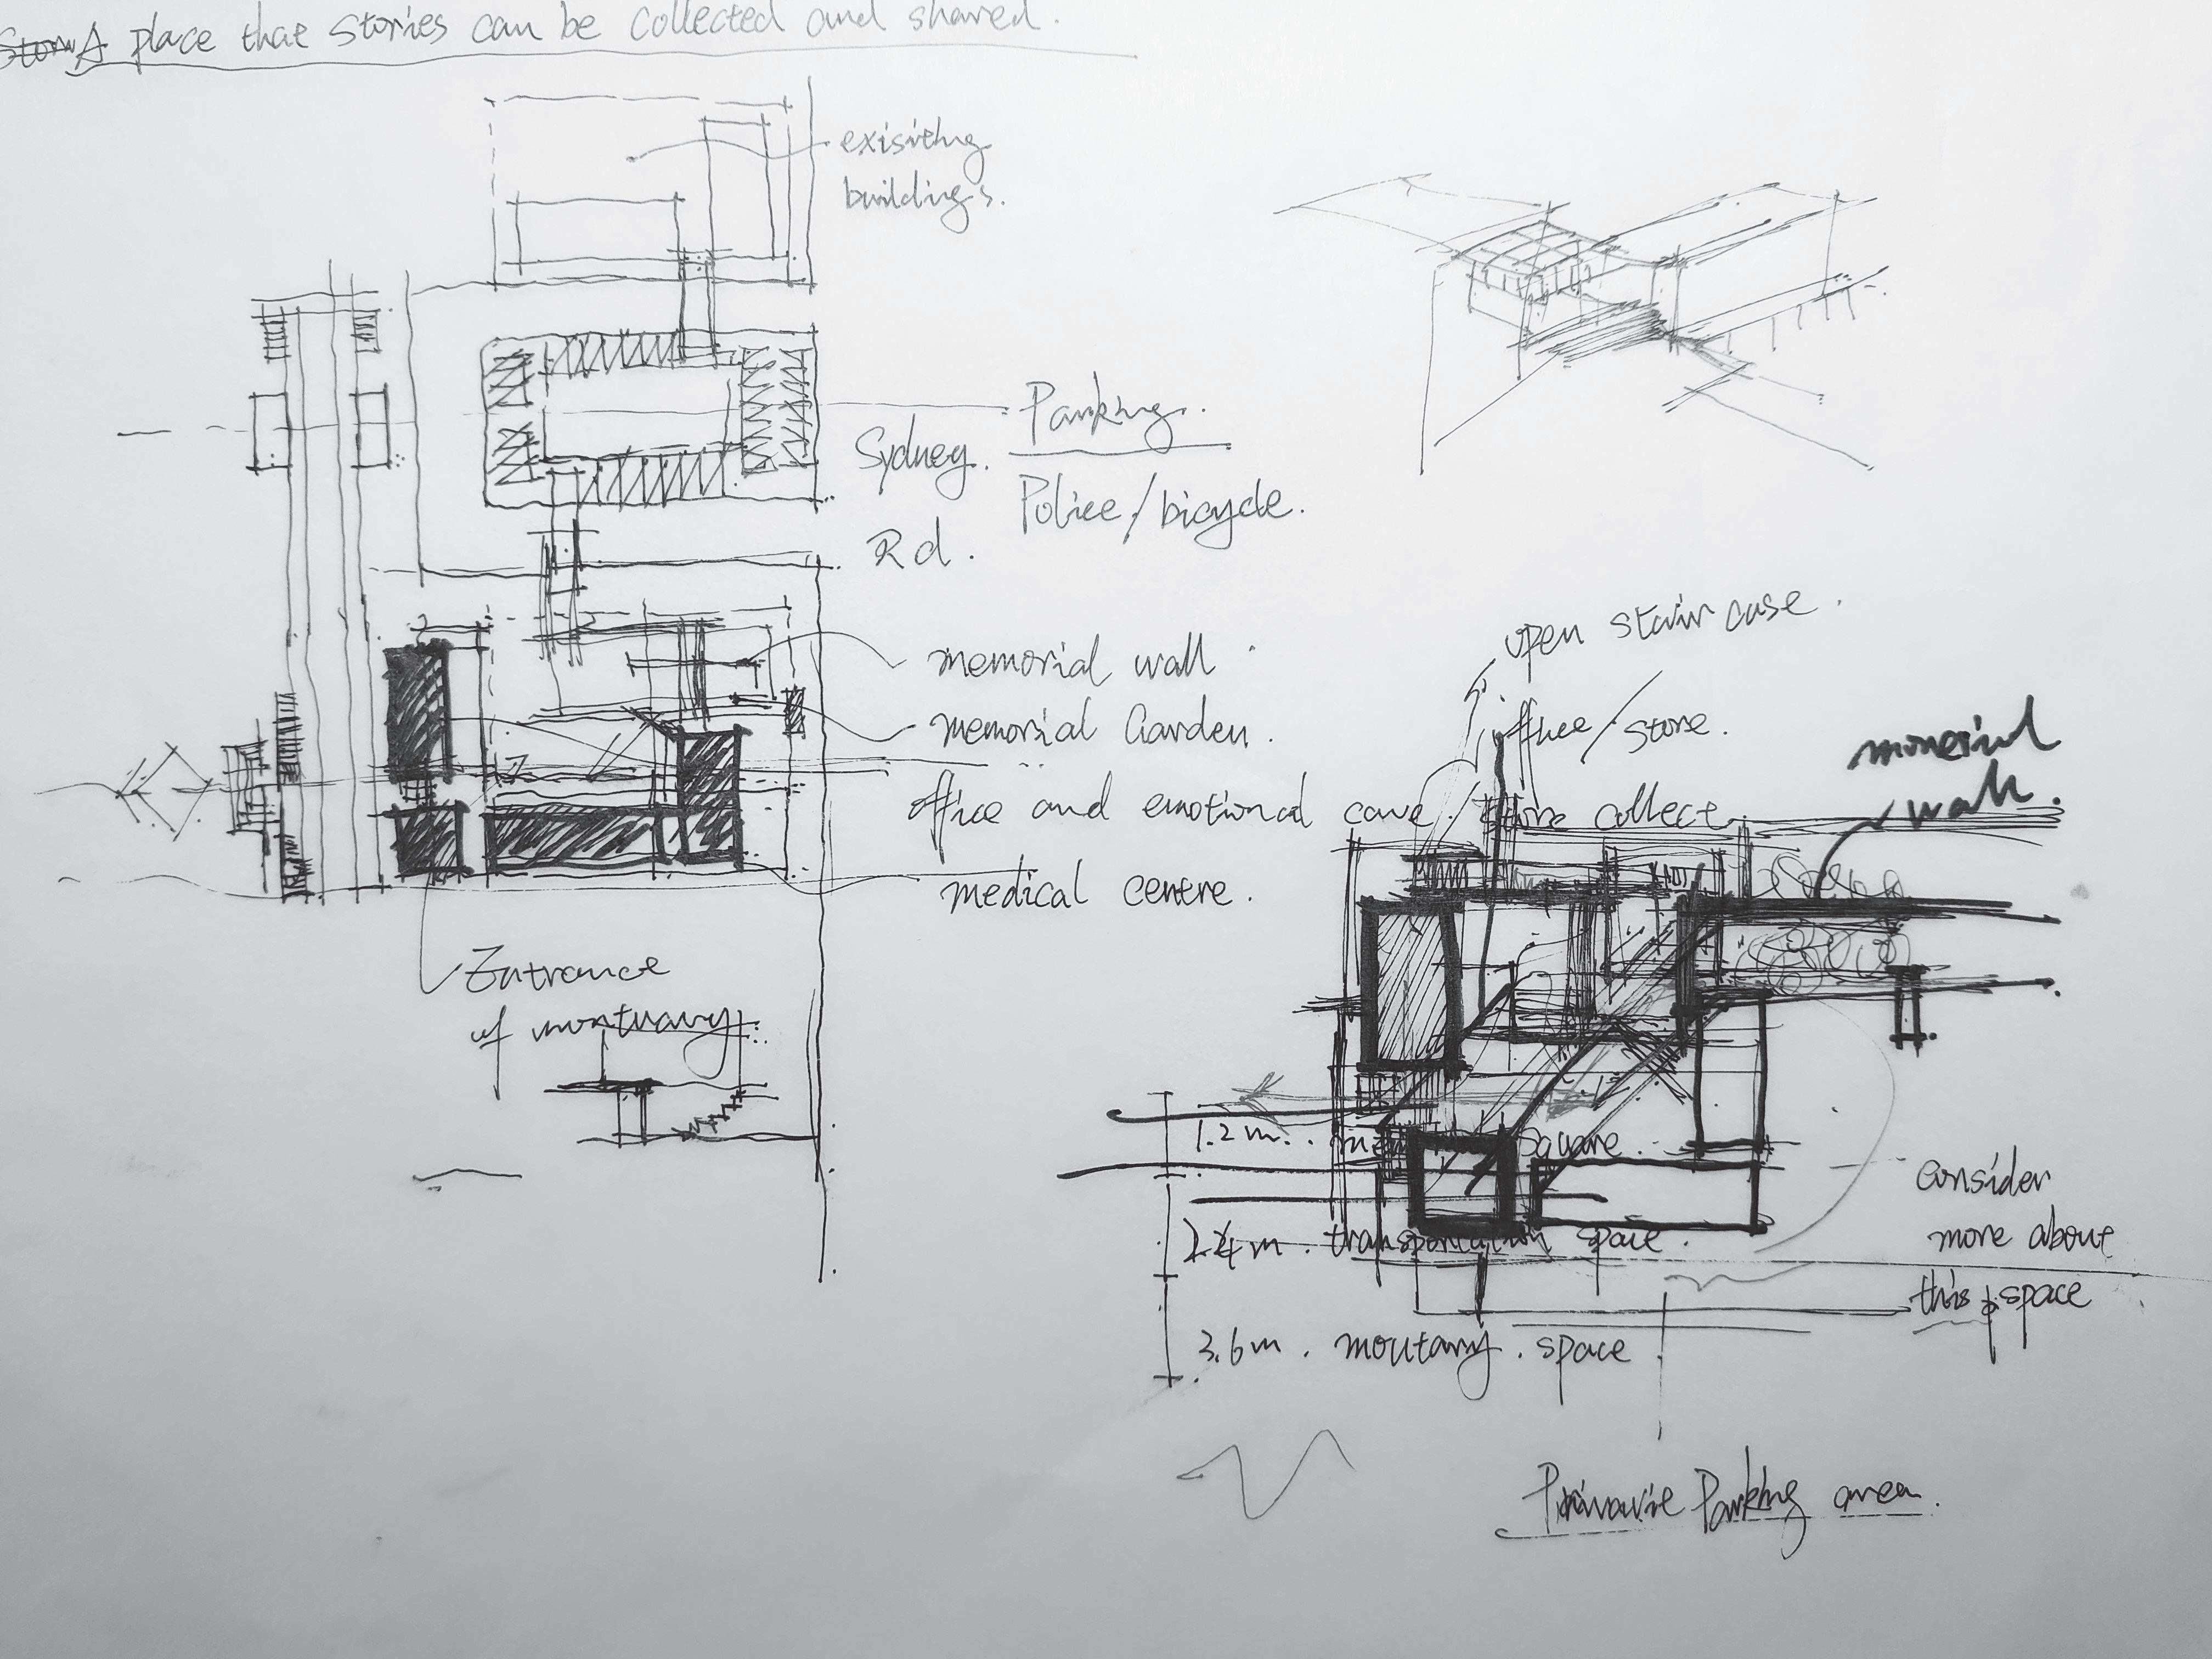 A place that stories can be collected and shared.
exisithg
buildings.
Parking.
Sydney.
Police/bicycle.
Rd.
open stair case.
memorial wall
office/store.
memorial Garden.
wall.
office and emotional care/store collect
medical centre.
Entrance
of mortuary
1.2m. square.
consider
more about
this space
2.4m. transportation space.
3.6m. moutary. space
Parking area.